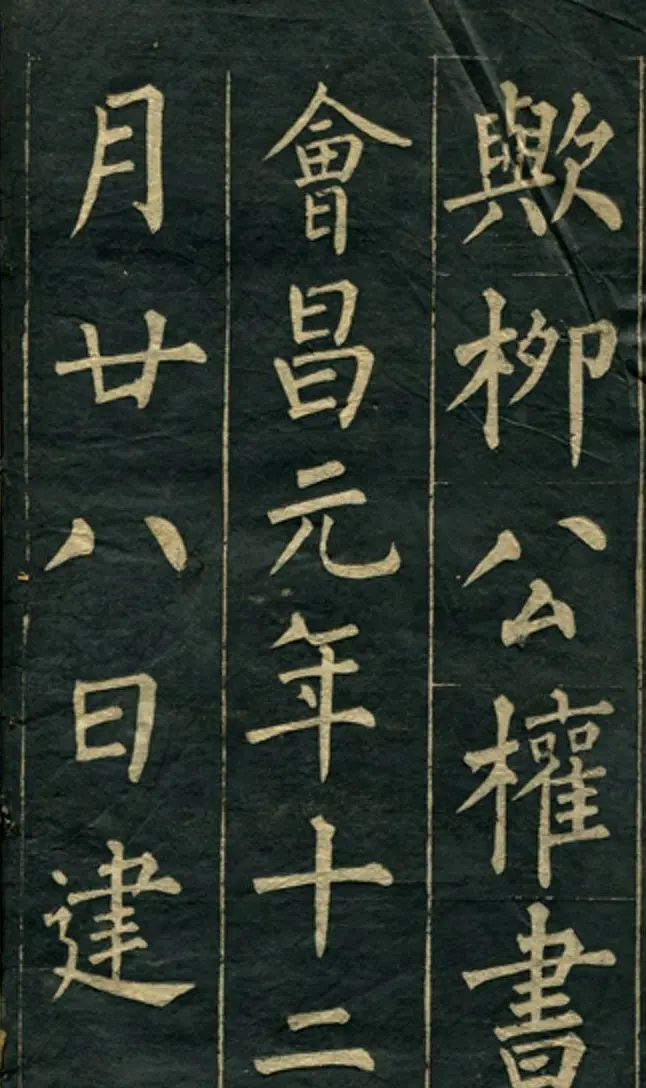 歟柳公權書
會昌元年十二
月廿八日建